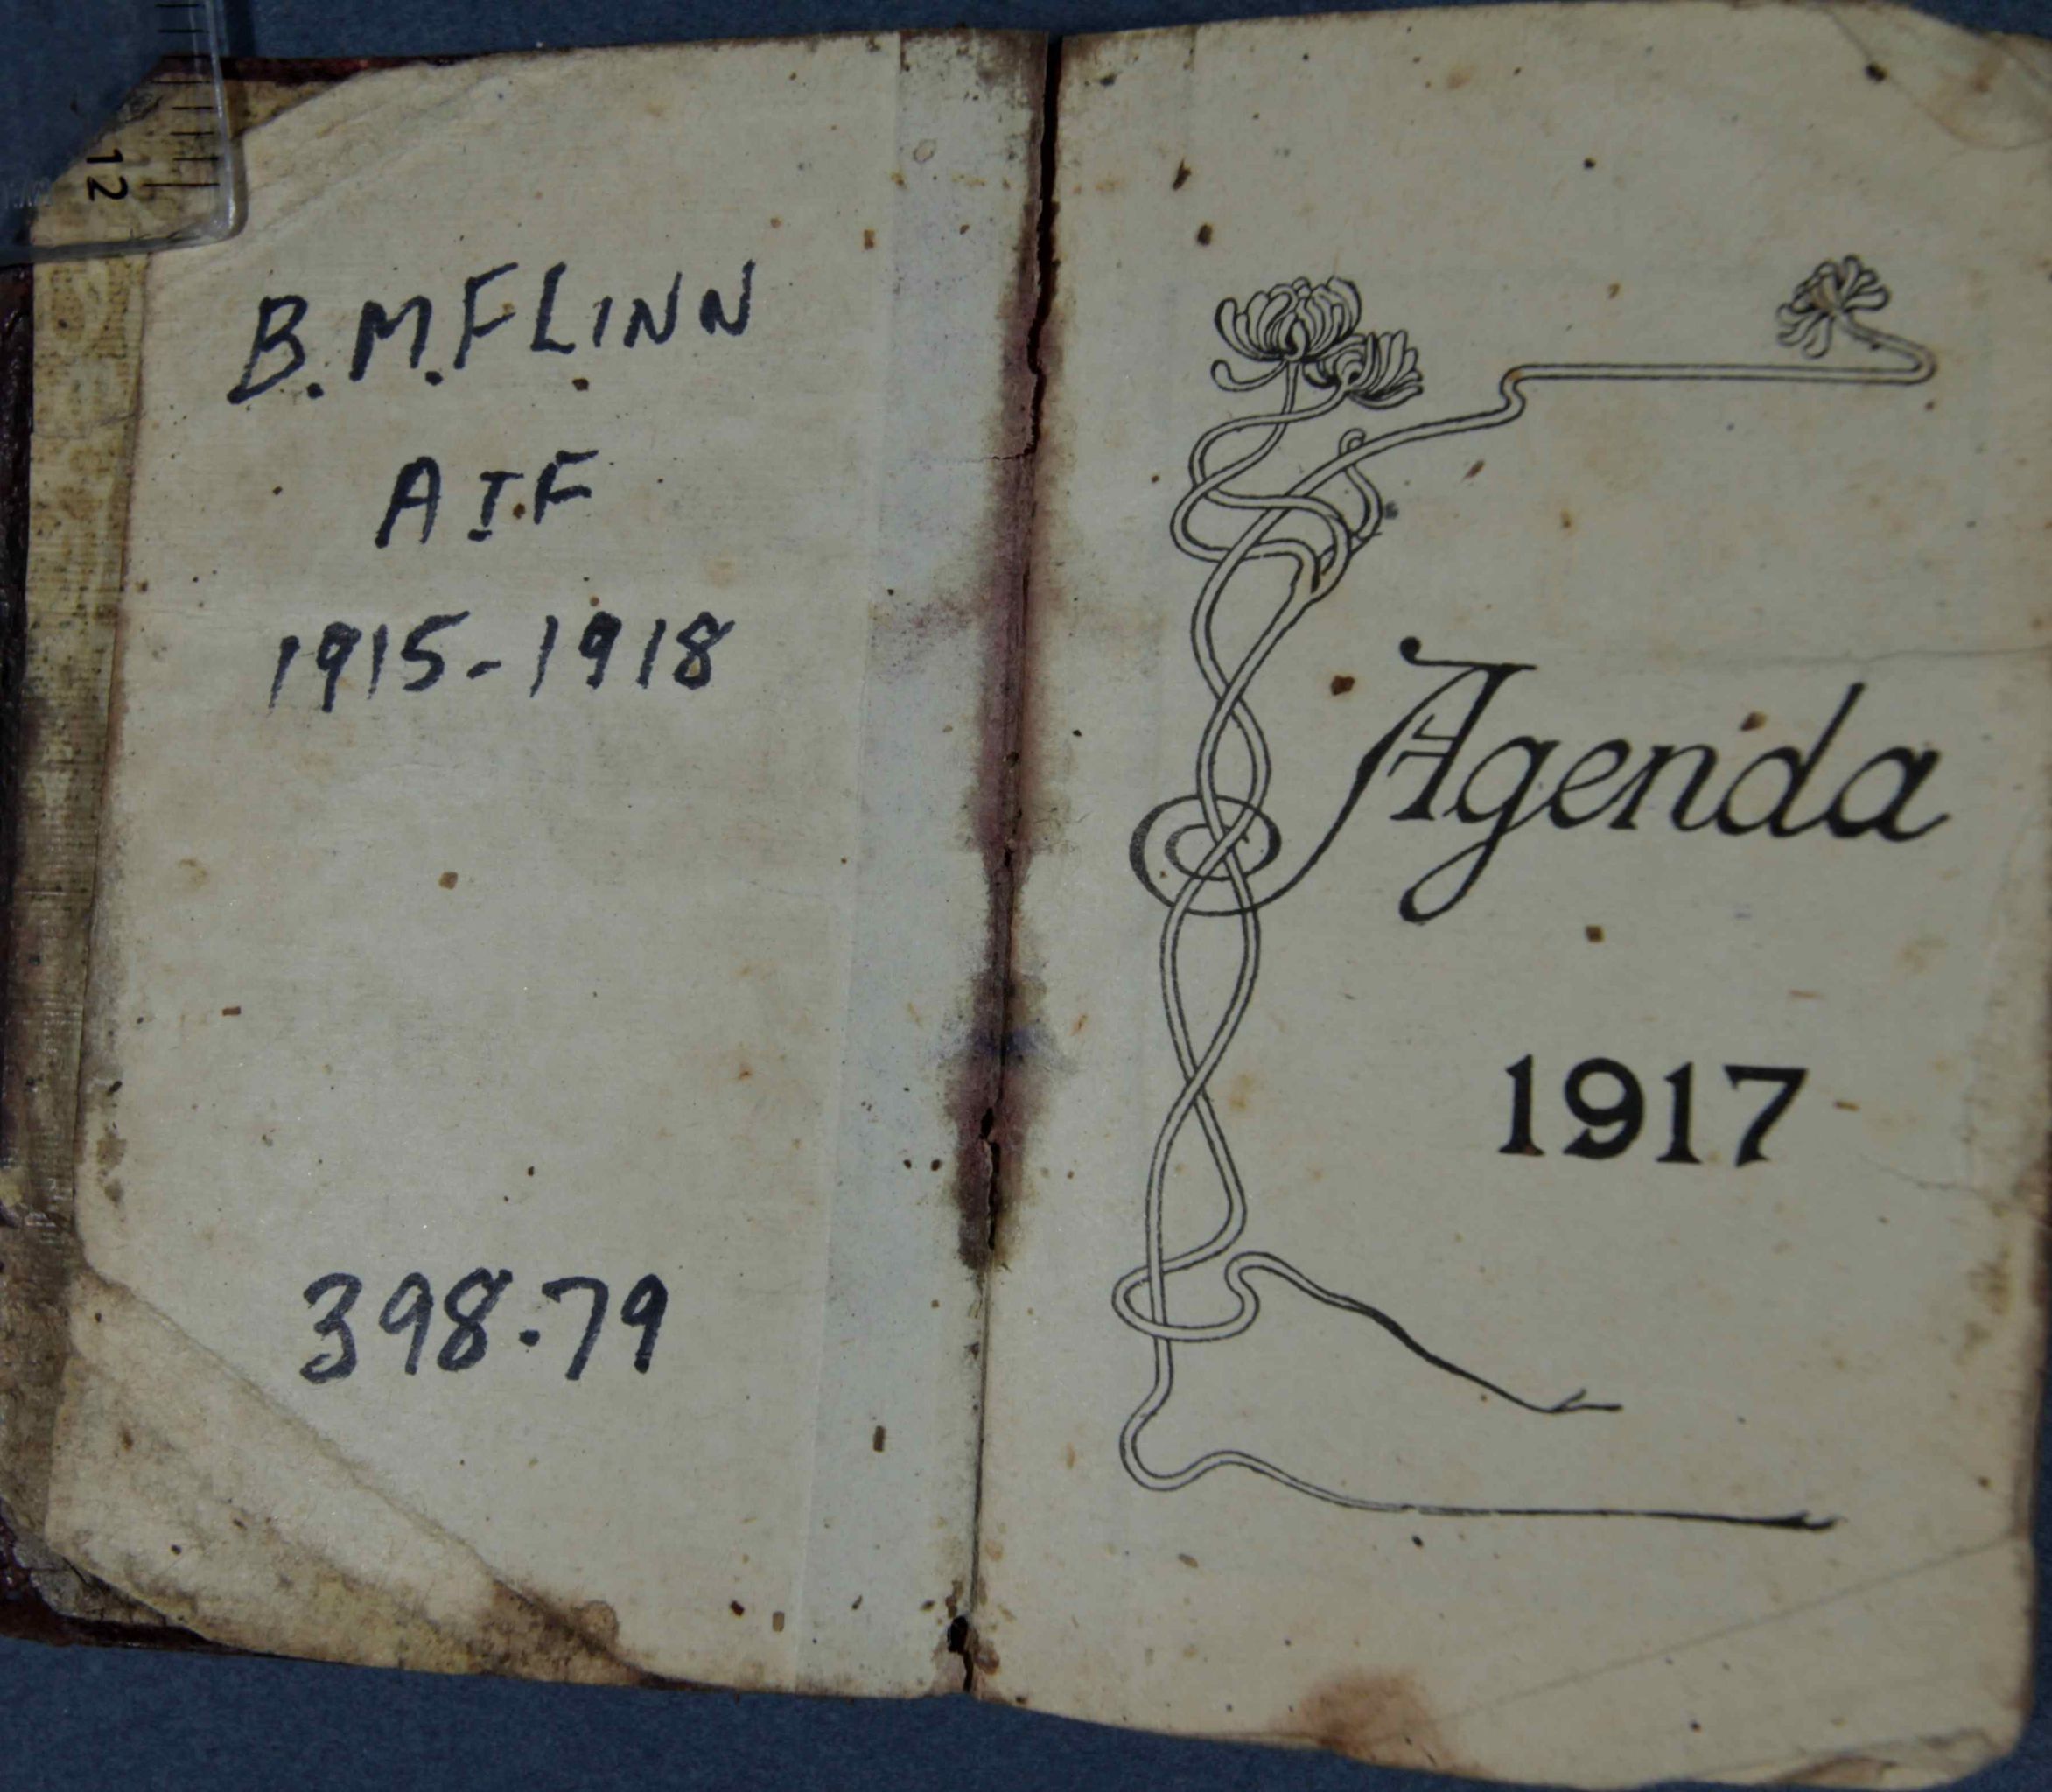 12
B.M.FLINN
A I.F
1915-1918
398.79
Agenda
1917